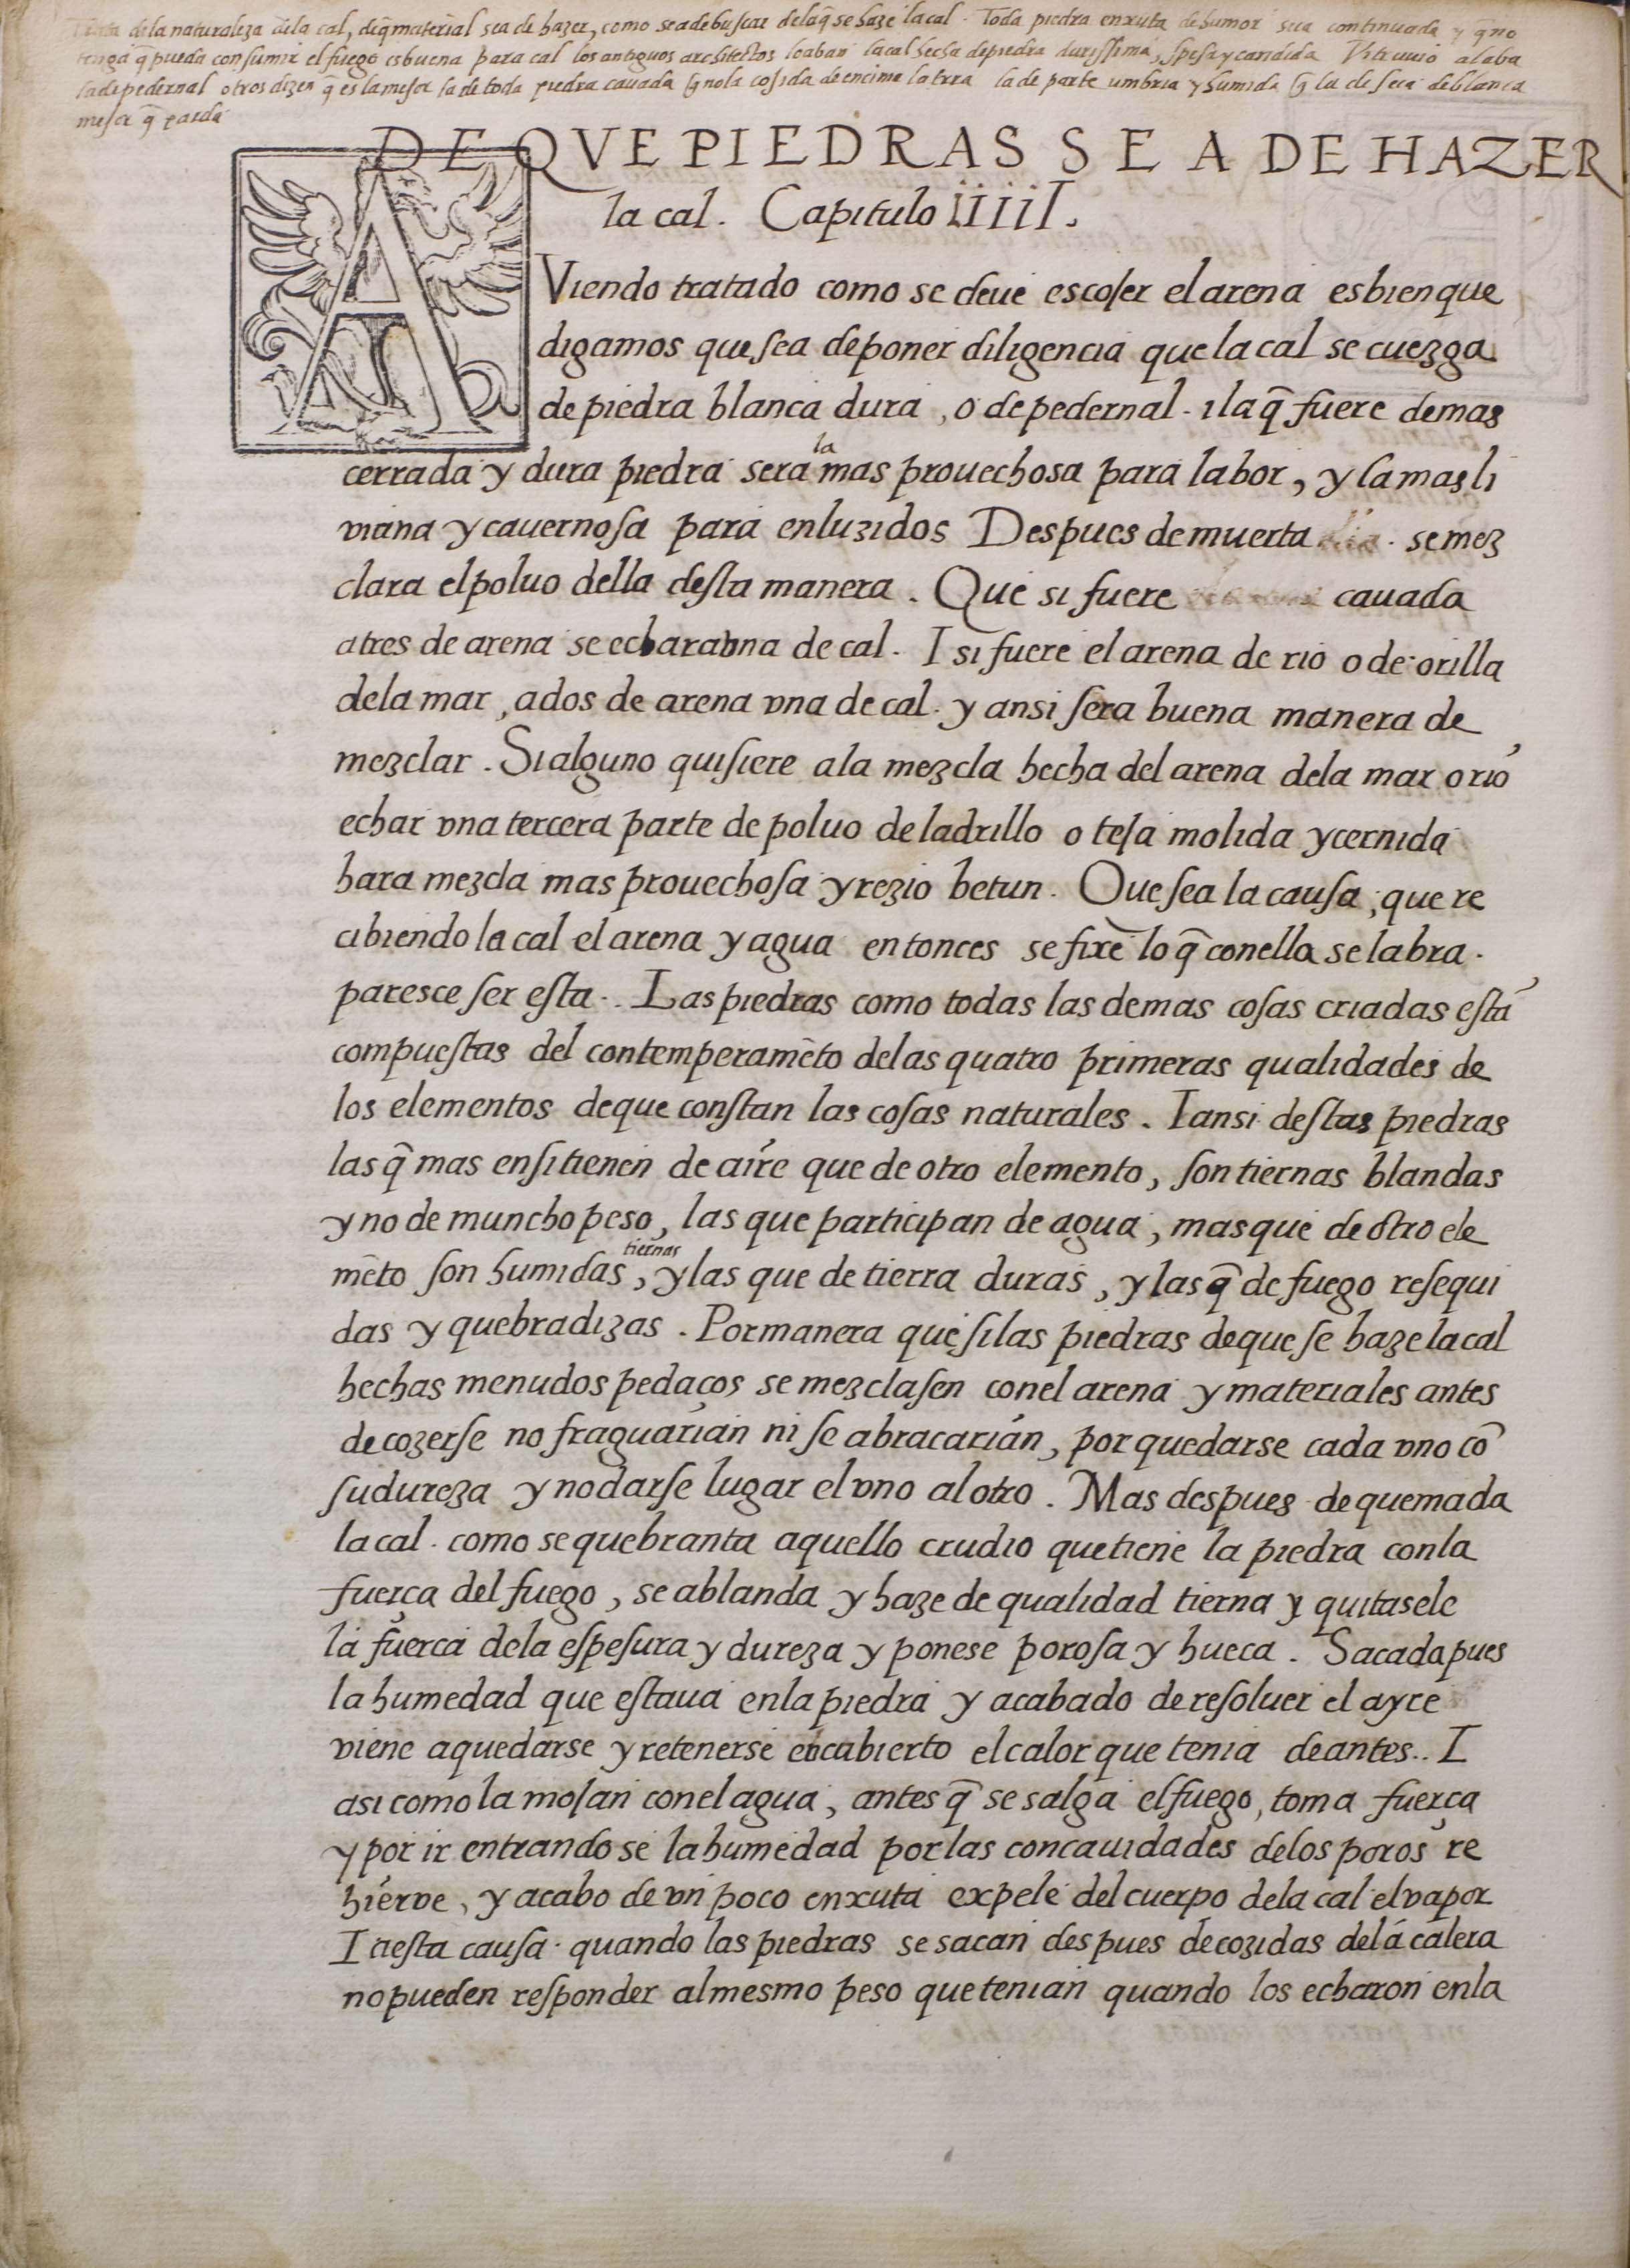 Trata dela naturaleza dela cal, de q̃ material sea de hazer, como se a de buscar dela q̃ se haze la cal. Toda piedra enxuta de humor sea continuada y q̃ no
tenga q̃ pueda consumir el fuego es buena para cal los antiguos architectos loaban la cal hecha de piedra durissima, spesa y candida Vitruuio alaba
la de pedernal otros dizen q̃ es la mejor la de toda piedra cauada q̃ no la cojida de encima la trra la de parte umbria y humida q̃ la de seca de blanca
mejor q̃ parda
DE QVE PIEDRAS SE A DE HAZER
la cal. Capitulo iiiiI.
AViendo tratado como se deue escojer el arena es bien que
digamos que sea de poner diligencia que la cal se cuezga
de piedra blanca dura, o de pedernal. i la q̃ fuere de mas
cerrada y dura piedra sera la mas prouechosa para labor, y la mas li
viana y cauernosa para enluzidos Despues de muerta . se mez
clara el poluo della desta manera. Que si fuere cauada
a tres de arena se echara vna de cal. I si fuere el arena de rio o de orilla
dela mar, a dos de arena vna de cal. y ansi sera buena manera de
mezclar. Si alguno quisiere a la mezcla hecha del arena dela mar o rio
echar vna tercera parte de poluo de ladrillo o teja molida y cernida
hara mezcla mas prouechosa y rezio betun. Que sea la causa, que re
cibiendo la cal el arena y agua entonces se fixe lo q̃ con ella se labra.
paresce ser esta. Las piedras como todas las demas cosas criadas está
compuestas del contemperamẽto delas quatro primeras qualidades de
los elementos de que constan las cosas naturales. I ansi destas piedras
las q̃ mas en si tienen de aire que de otro elemento, son tiernas blandas
y no de muncho peso, las que participan de agua, mas que de otro ele
mẽto son humidas, tiernas y las que de tierra duras, y las q̃ de fuego resequi
das y quebradizas. Por manera que si las piedras de que se haze la cal
hechas menudos pedaços se mezclasen con el arena y materiales antes
de cozerse no fraguarian ni se abraçarian, por quedarse cada vno cõ
su dureza y no darse lugar el vno al otro. Mas despues de quemada
la cal. como se quebranta aquello crudio que tiene la piedra con la
fuerça del fuego, se ablanda y haze de qualidad tierna y quitasele
la fuerça dela espesura y dureza y ponese porosa y hueca. Sacada pues
la humedad que estaua en la piedra y acabado de resoluer el ayre
viene a quedarse y retenerse encubierto el calor que tenia de antes.. I
asi como la mojan con el agua, antes q̃ se salga el fuego, toma fuerça
y por ir entrandose la humedad por las concauidades delos poros re
hierve, y acabo de vn poco enxuta expele del cuerpo dela cal el vapor
I a esta causa. quando las piedras se sacan despues de cozidas dela calera
no pueden responder al mesmo peso que tenian quando los echaron en la